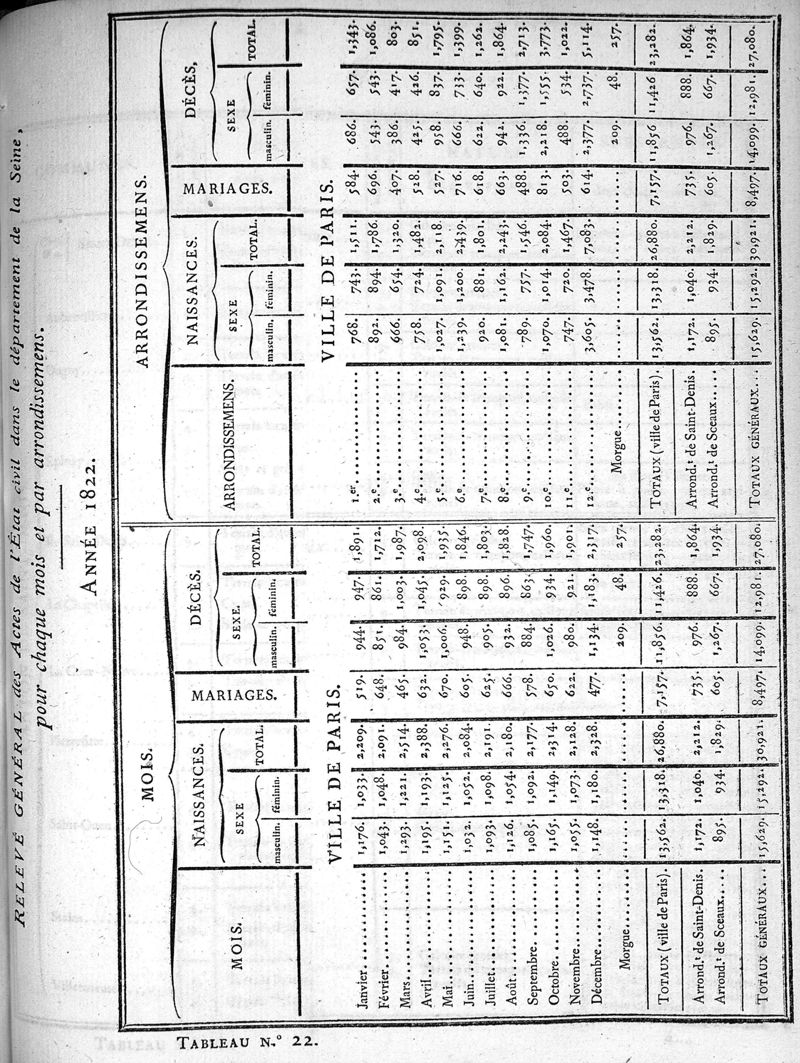 RELEVÉ GÉNÉRAL des Actes de l'État civil dans le département de la Seine,
pour chaque mois et par arrondissemens.
ANNÉE 1822.
TABLEAU N.° 22.
MOIS.
MOIS. NAISSANCES. MARIAGES. DÉCÈS.
SEXE TOTAL. SEXE. TOTAL.
masculin. féminin. masculin. féminin.
VILLE DE PARIS.
Janvier 1,176. 1,033. 2,209. 519. 944. 947. 1,891.
Février 1,043. 1,048. 2,091. 648. 851. 861. 1,712.
Mars 1,293. 1,221. 2,514. 465. 984. 1,003. 1,987.
Avril 1,195. 1,193. 2,388. 632. 1,053. 1,045. 2,098.
Mai 1,151. 1,125. 2,276. 670. 1,006. 929. 1,935.
Juin 1,032. 1,052. 2,084. 605. 948. 898. 1,846.
Juillet 1,093. 1,098. 2,191. 625. 905. 898. 1,803.
Août 1,126. 1,054. 2,180. 666. 932. 896. 1,828.
Septembre 1,085. 1,092. 2,177. 578. 884. 863. 1,747.
Octobre 1,165. 1,149. 2,314. 650. 1,026. 934. 1,960.
Novembre 1,055. 1,073. 2,128. 622. 980. 921. 1,901.
Décembre 1,148. 1,180. 2,328. 477. 1,134. 1,183. 2,317.
Morgue 209. 48. 257.
TOTAUX (ville de Paris). 13,562. 13,318. 26,880. 7,157. 11,856. 11,426. 23,282.
Arrond.t de Saint-Denis. 1,172. 1,040. 2,212. 735. 976. 888. 1,864.
Arrond.t de Sceaux 895. 934. 1,829. 605. 1,267. 667. 1,934.
TOTAUX GÉNÉRAUX 15,629. 15,292. 30,921. 8,497. 14,099. 12,981. 27,080.
ARRONDISSEMENS.
ARRONDISSEMENS. NAISSANCES. MARIAGES. DÉCÈS,
SEXE TOTAL. SEXE TOTAL.
masculin. féminin. masculin. féminin.
VILLE DE PARIS.
1.er 768. 743. 1,511. 584. 686. 657. 1,343.
2.e 892. 894. 1,786. 696. 543. 543. 1,086.
3.e 666. 654. 1,320. 407. 386. 417. 803.
4.e 758. 724. 1,482. 528. 425. 426. 851.
5.e 1,027. 1,091. 2,118. 527. 958. 837. 1,795.
6.e 1,239. 1,200. 2,439. 716. 666. 733. 1,399.
7.e 920. 881. 1,801. 618. 622. 640. 1,262.
8.e 1,081. 1,162. 2,243. 663. 942. 922. 1,864.
9.e 789. 757. 1,546. 488. 1,336. 1,377. 2,713.
10.e 1,070. 1,014. 2,084. 813. 2,218. 1,555. 3,773.
11.e 747. 720. 1,467. 503. 488. 534. 1,022.
12.e 3,605. 3,478. 7,083. 614. 2,377. 2,737. 5,114.
Morgue 209. 48. 257.
TOTAUX (ville de Paris). 13,562. 13,318. 26,880. 7,157. 11,856 11,426 23,282.
Arrond.t de Saint-Denis. 1,172. 1,040. 2,212. 735. 976. 888. 1,864.
Arrond.t de Sceaux 895. 934. 1,829. 605. 1,267. 667. 1,934.
TOTAUX GÉNÉRAUX 15,629. 15,292. 30,921. 8,497. 14,099. 12,981. 27,080.